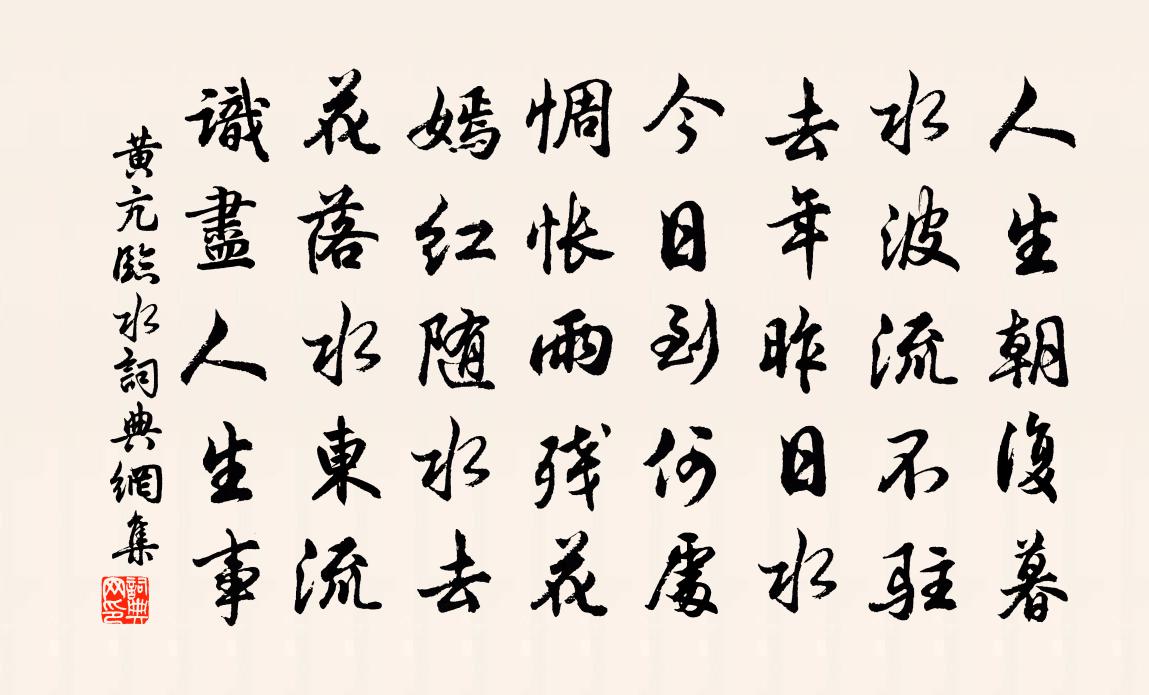 人生朝復暮
水波流不駐
去年昨日水
今日到何處
惆悵雨残花
嫣红随水去
花落水東流
識盡人生事
黄亢臨水詞典網集
詞典网印